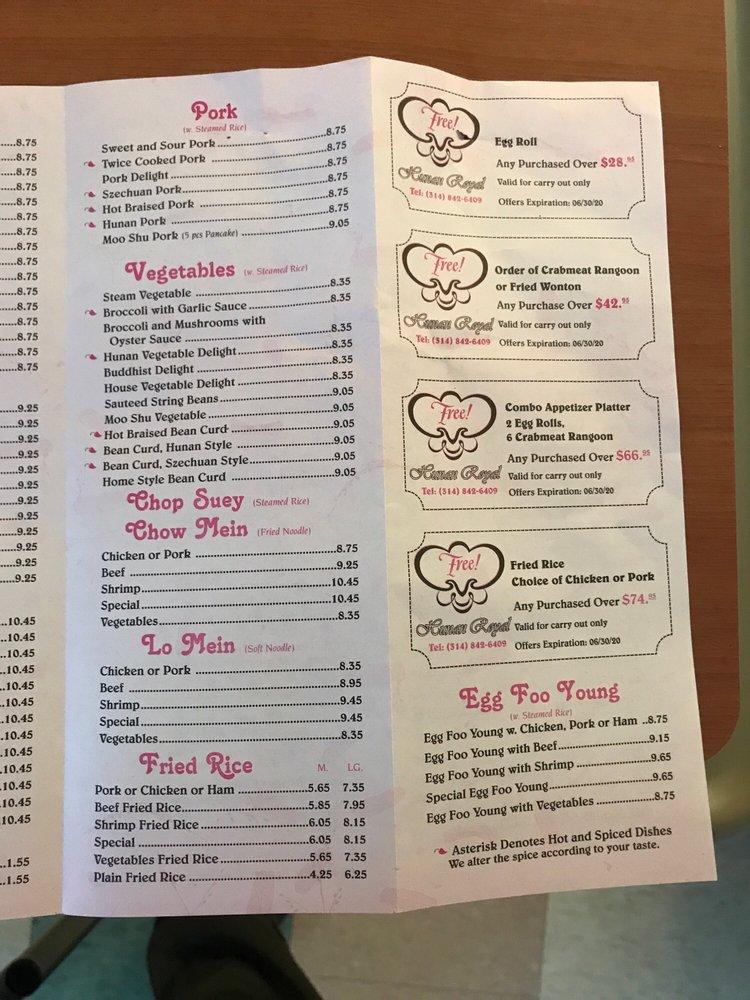 ....8.75
....8.75
....8.75
....8.75
....8.75
....8.75
....8.75
....8.75
....8.75
....8.75
....8.75
....8.75
....8.75
....8.75
....8.75
....8.75
....9.25
....9.25
....9.25
....9.25
....9.25
....9.25
....9.25
....9.25
....9.25
....9.25
....9.25
....9.25
..10.45
..10.45
..10.45
..10.45
..10.45
..10.45
..10.45
..10.45
..10.45
..10.45
..10.45
..10.45
..10.45
...1.55
...1.55
Pork
(w. Steamed Rice)
Sweet and Sour Pork ........ 8.75
Twice Cooked Pork ........ 8.75
Pork Delight ........ 8.75
Szechuan Pork ........ 8.75
Hot Braised Pork ........ 8.75
Hunan Pork ........ 8.75
Moo Shu Pork (5 pcs Pancake) ........ 9.05
Vegetables (w. Steamed Rice)
Steam Vegetable ........ 8.35
Broccoli with Garlic Sauce ........ 8.35
Broccoli and Mushrooms with
Oyster Sauce ........ 8.35
Hunan Vegetable Delight ........ 8.35
Buddhist Delight ........ 8.35
House Vegetable Delight ........ 8.35
Sauteed String Beans ........ 9.05
Moo Shu Vegetable ........ 9.05
Hot Braised Bean Curd ........ 9.05
Bean Curd, Hunan Style ........ 9.05
Bean Curd, Szechuan Style ........ 9.05
Home Style Bean Curd ........ 9.05
Chop Suey (Steamed Rice)
Chow Mein (Fried Noodle)
Chicken or Pork ........ 8.75
Beef ........ 9.25
Shrimp ........ 10.45
Special ........ 10.45
Vegetables ........ 8.35
Lo Mein (Soft Noodle)
Chicken or Pork ........ 8.35
Beef ........ 8.95
Shrimp ........ 9.45
Special ........ 9.45
Vegetables ........ 8.35
Fried Rice M. LG.
Pork or Chicken or Ham ........ 5.65 7.35
Beef Fried Rice ........ 5.85 7.95
Shrimp Fried Rice ........ 6.05 8.15
Special ........ 6.05 8.15
Vegetables Fried Rice ........ 5.65 7.35
Plain Fried Rice ........ 4.25 6.25
Free!
Hunan Royal
Tel: (314) 842-6409
Egg Roll
Any Purchased Over $28.95
Valid for carry out only
Offers Expiration: 06/30/20
Free!
Hunan Royal
Tel: (314) 842-6409
Order of Crabmeat Rangoon
or Fried Wonton
Any Purchase Over $42.95
Valid for carry out only
Offers Expiration: 06/30/20
Free!
Hunan Royal
Tel: (314) 842-6409
Combo Appetizer Platter
2 Egg Rolls,
6 Crabmeat Rangoon
Any Purchased Over $66.95
Valid for carry out only
Offers Expiration: 06/30/20
Free!
Hunan Royal
Tel: (314) 842-6409
Fried Rice
Choice of Chicken or Pork
Any Purchased Over $74.95
Valid for carry out only
Offers Expiration: 06/30/20
Egg Foo Young
(w. Steamed Rice)
Egg Foo Young w. Chicken, Pork or Ham ..8.75
Egg Foo Young with Beef ........ 9.15
Egg Foo Young with Shrimp ........ 9.65
Special Egg Foo Young ........ 9.65
Egg Foo Young with Vegetables ........ 8.75
Asterisk Denotes Hot and Spiced Dishes
We alter the spice according to your taste.